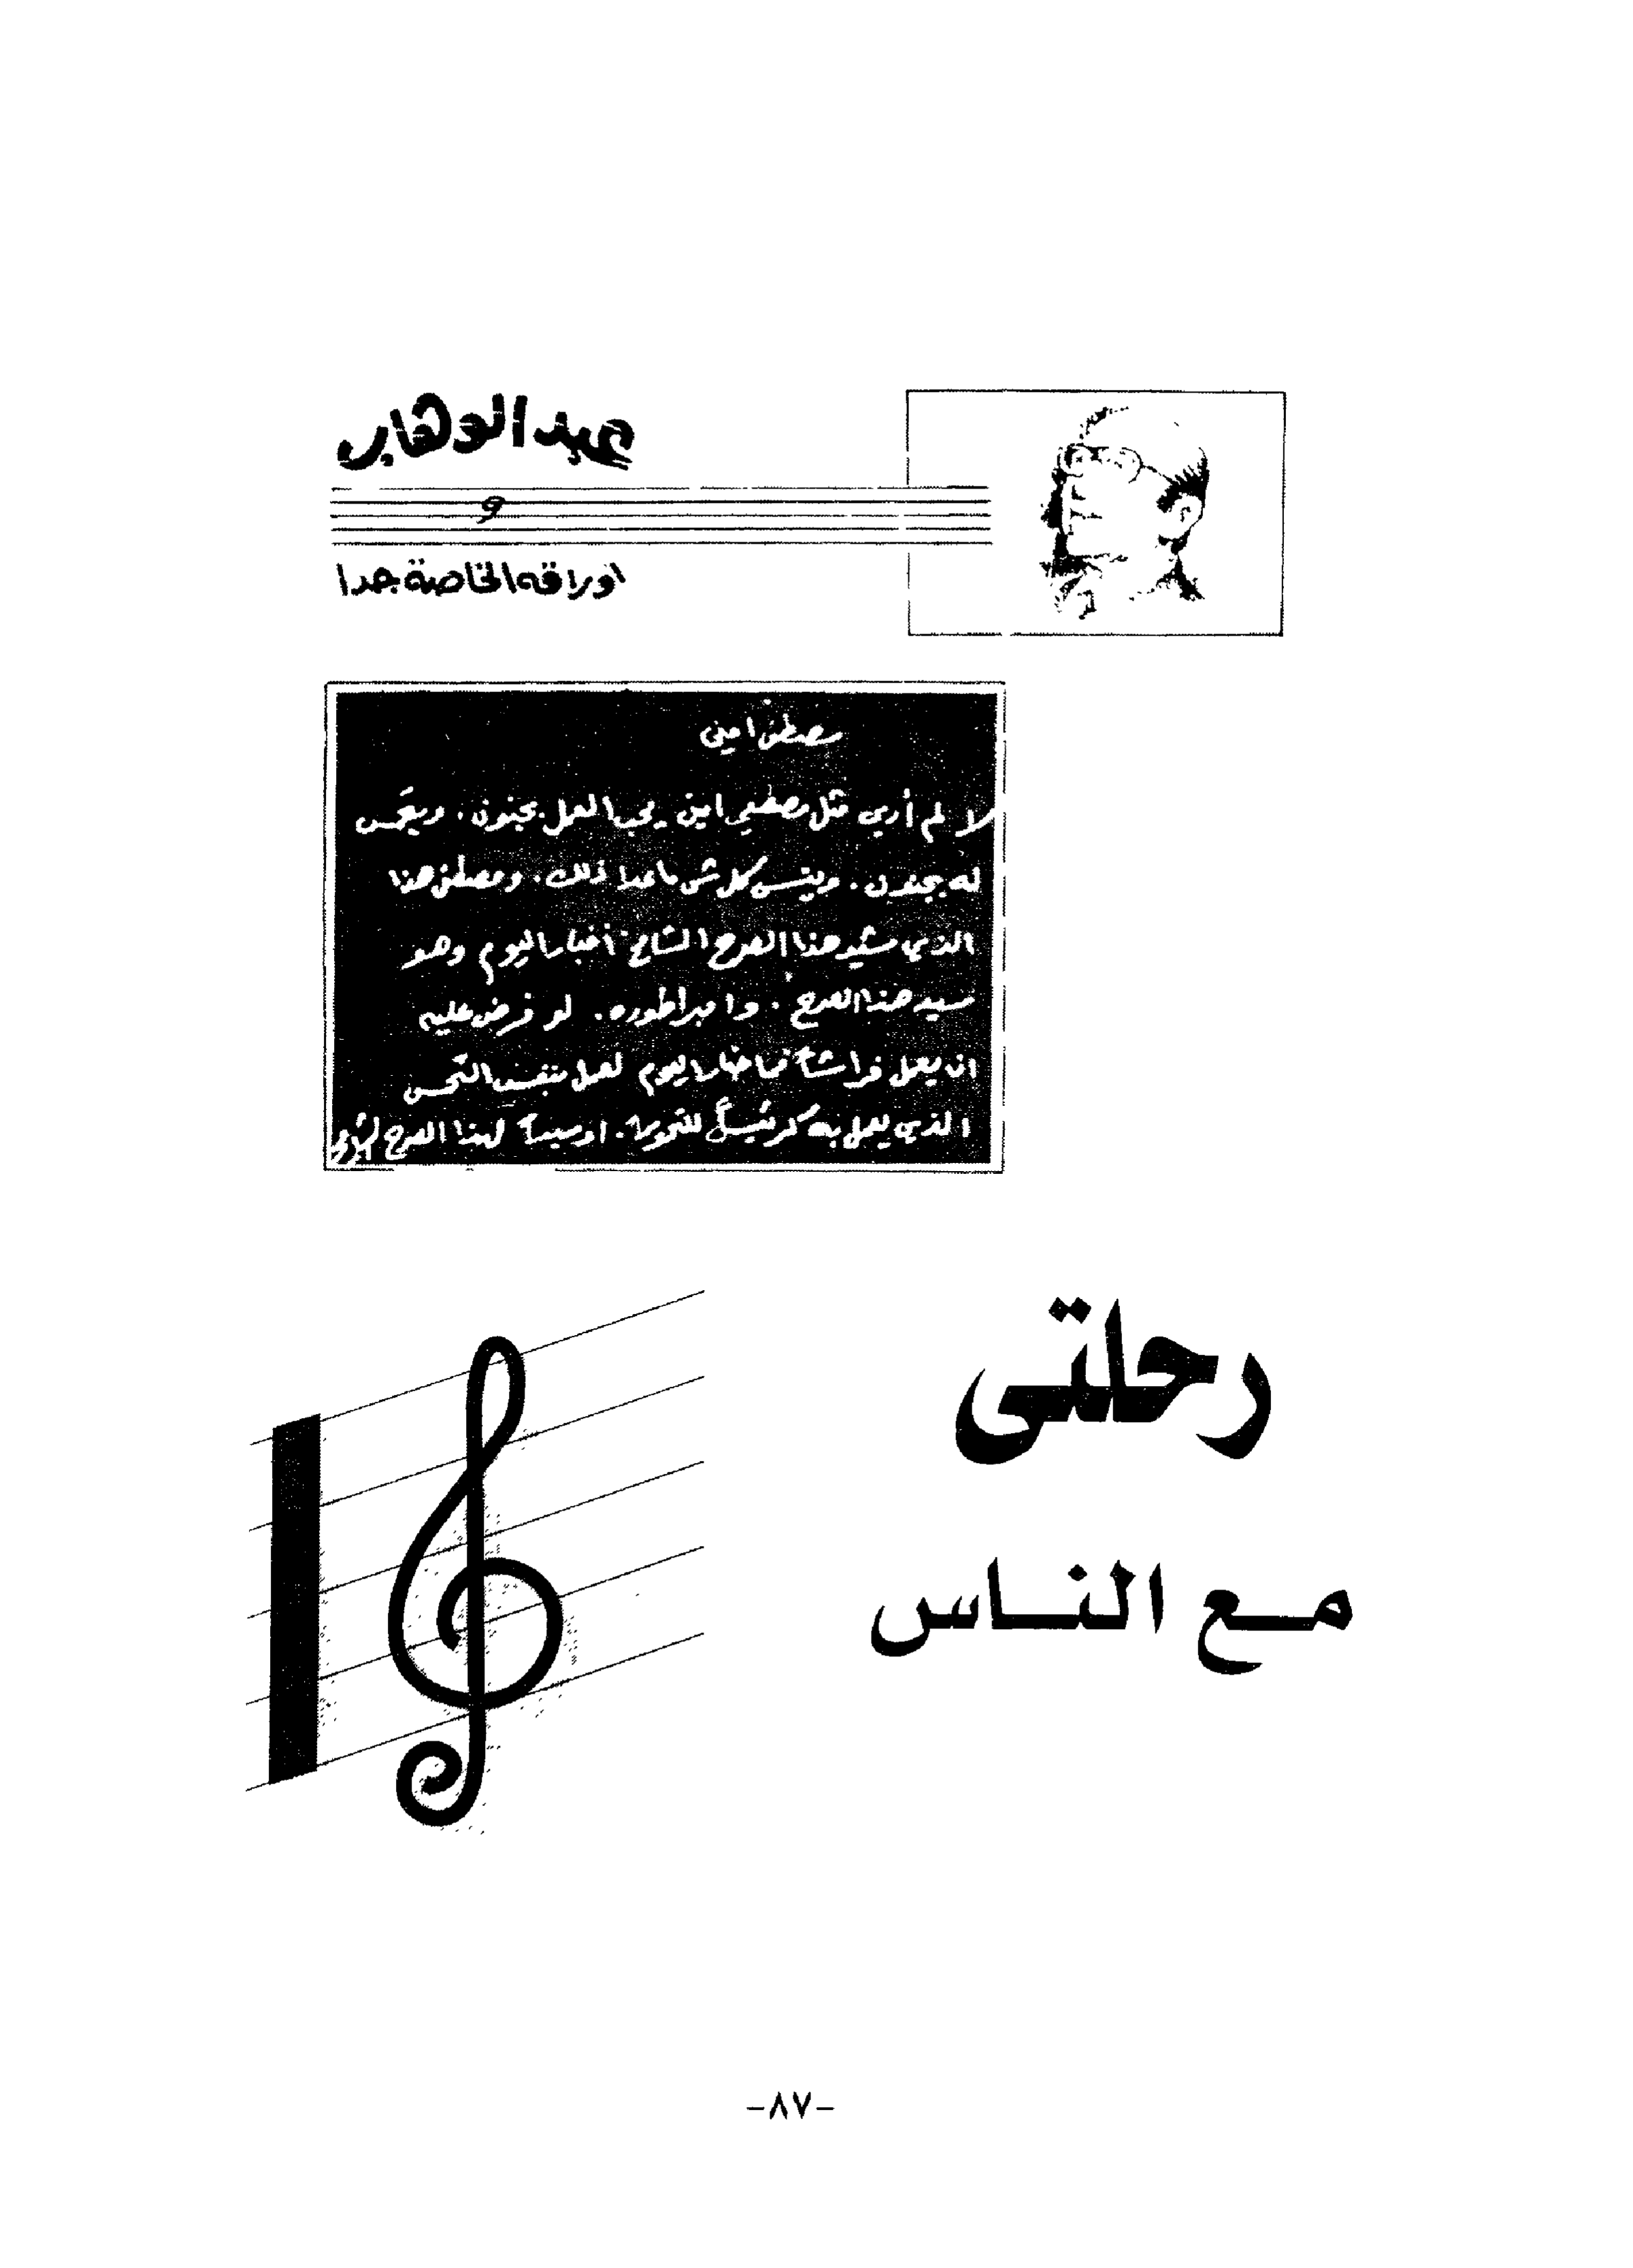 عبد الوهاب
و
اوراقه الخاصة جدا
مصطفى امين
لم أرى مثل مصطفى امين يحب العمل بجنون . ويتحمس
له بجنون . وينسى كل شئ ماعدا ذلك . ومصطفى هذا
الذي شيد هذا الصرح الشامخ أخبار اليوم وهو
سيد هذا الصرح . وامبراطوره . لو فرض عليه
ان يعمل فراشاً فى اخبار اليوم لعمل بنفس التحمس
الذي يعمل به كرئيساً للتحرير . او سيداً لهذا الصرح
رحلتى
مع الناس
-٨٧-